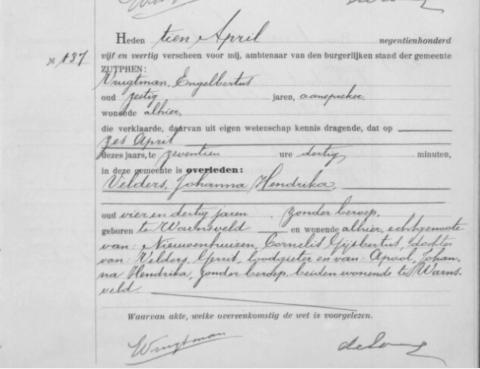 Heden tien April negentienhonderd
No 187 vijf en veertig verscheen voor mij, ambtenaar van den burgerlijken stand der gemeente
ZUTPHEN:
Vrugtman, Engelbertus
oud zestig jaren, aanspreker
wonende alhier,
die verklaarde, daarvan uit eigen wetenschap kennis dragende, dat op
zes April
dezes jaars, te zeventien ure dertig minuten,
in deze gemeente is overleden:
Velders, Johanna Hendrika
oud vier en dertig jaren, zonder beroep,
geboren te Warnsveld en wonende alhier, echtgenoote
van: Nieuwenhuizen, Cornelis Gijsbertus, dochter
van: Velders, Gerrit, loodgieter en van: Apool, Johan-
na Hendrika, zonder beroep, beiden wonende te Warns-
veld.
Waarvan akte, welke overeenkomstig de wet is voorgelezen.
Vrugtman